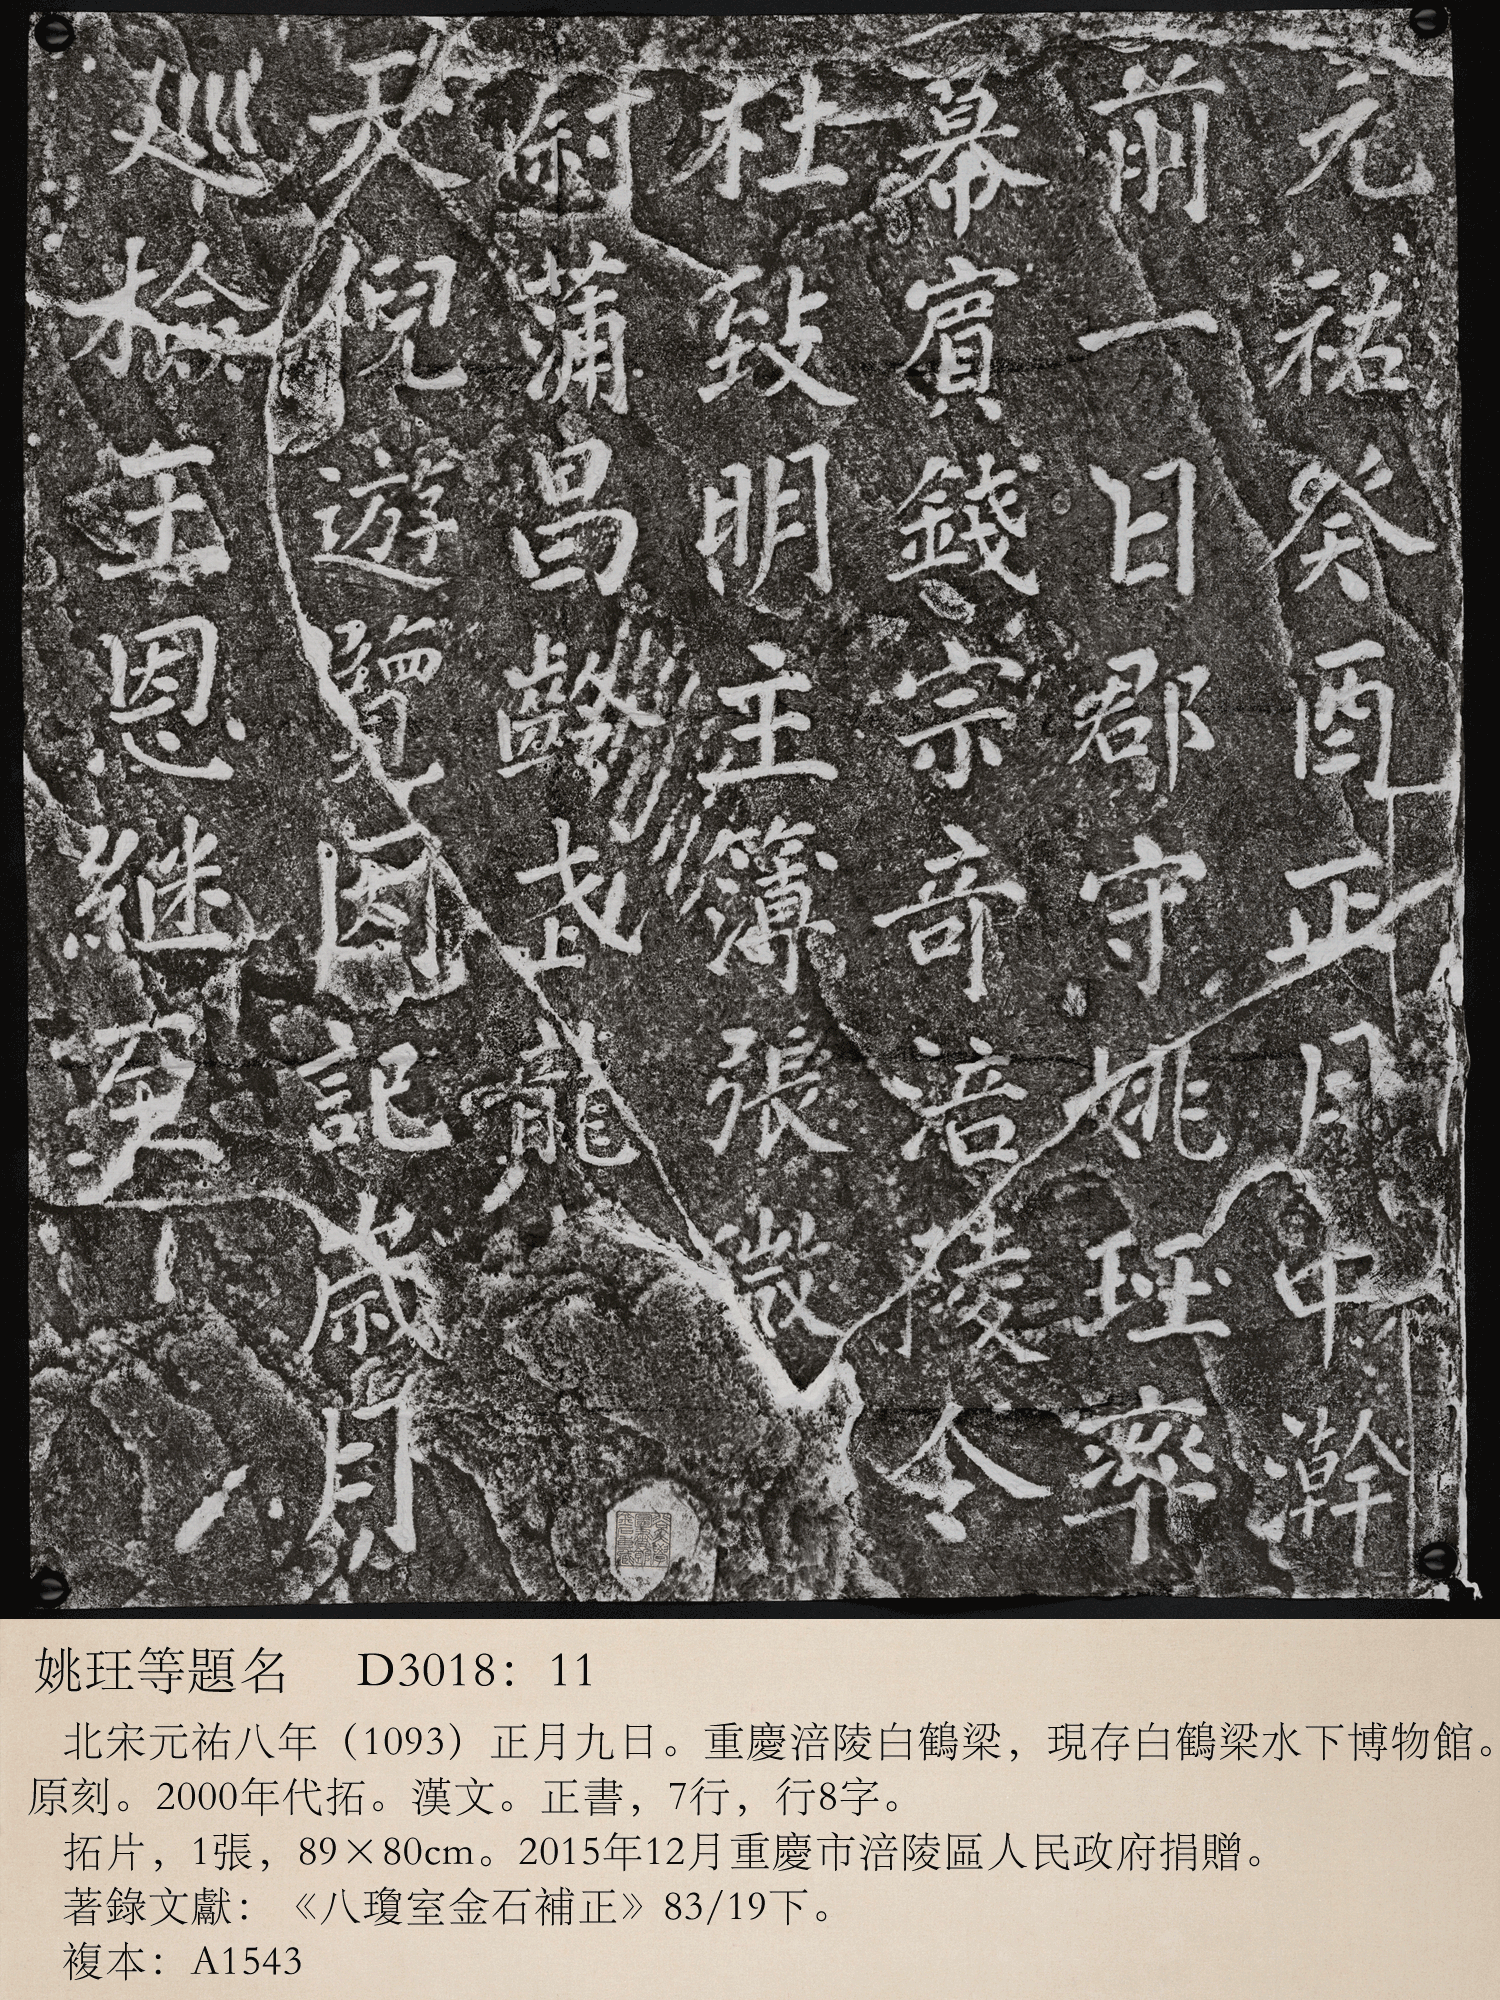 元祐癸酉正月中澣
前一日郡守姚珏率
幕賓錢宗竒涪陵令
杜致明主簿張微
尉蒲昌齡武龍
天倪遊覽因記歲月
巡檢王恩継
姚珏等題名 D3018：11
北宋元祐八年（1093）正月九日。重慶涪陵白鶴梁，現存白鶴梁水下博物館。
原刻。2000年代拓。漢文。正書，7行，行8字。
拓片，1張，89×80cm。2015年12月重慶市涪陵區人民政府捐贈。
著錄文獻：《八瓊室金石補正》83/19下。
複本：A1543